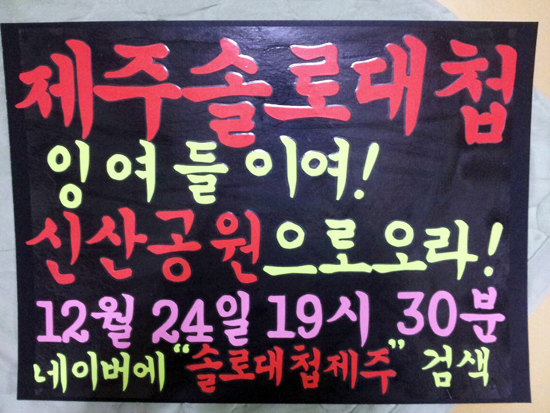 제주솔로대첩
잉여들이여!
신산공원으로오라!
12월 24일 19시 30분
네이버에 "솔로대첩제주" 검색